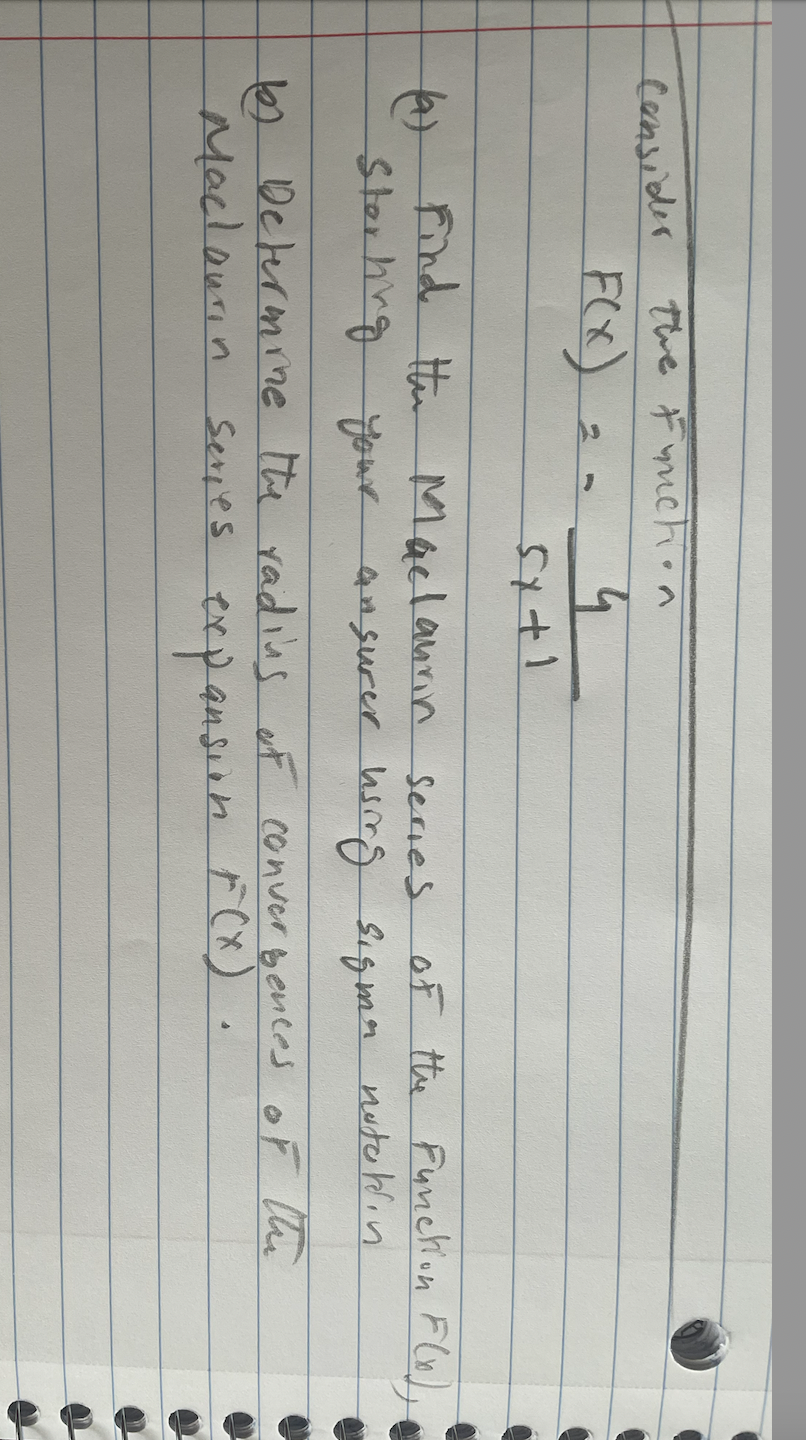 consider the function
F(x) = - 4
5x + 1
(a) Find the Maclaurin series of the function F(x),
Starting your answer using sigma notation
b) Determine the radius of convergences of the
Maclaurin series expansion F(x).